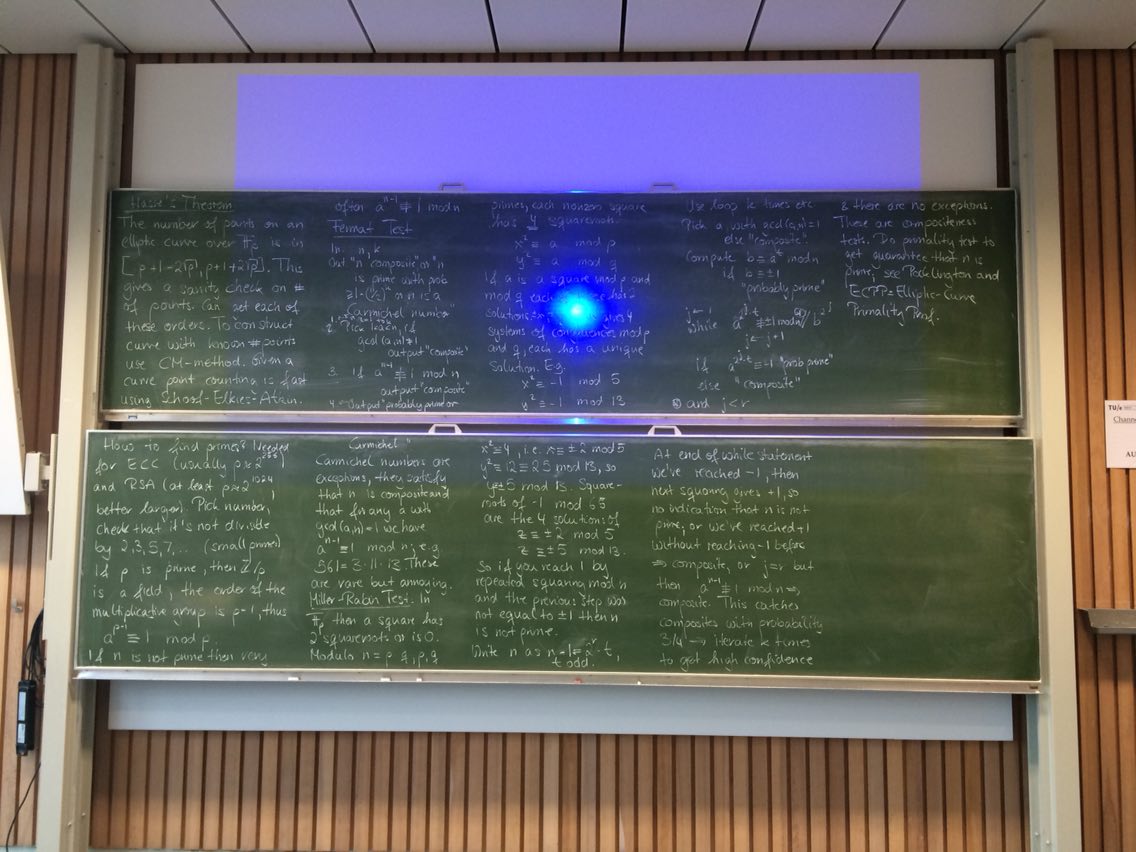 Hasse's Theorem
The number of points on an
elliptic curve over F_p is in
[p+1-2√p, p+1+2√p]. This
gives a sanity check on #
of points. Can get each of
these orders. To construct
curve with known # points
use CM-method. Given a
curve point counting is fast
using Schoof-Elkies-Atkin.
How to find primes? Needed
for ECC (usually p≈2^256)
and RSA (at least p≈2^1024,
better larger). Pick number,
check that it's not divisible
by 2,3,5,7,.. (small primes)
If p is prime, then Z/p
is a field, the order of the
multiplicative group is p-1, thus
a^{p-1} ≡ 1 mod p.
If n is not prime then very
often a^{n-1} ≢ 1 mod n
Fermat Test
In: n, k
Out: "n composite" or "n
is prime with prob
n is a
Carmichel number
2. Pick
gcd(a,n)≠1
output "composite"
3. if a^{n-1} ≢ 1 mod n
output "composite"
4. Output "probably prime or
Carmichel"
Carmichel numbers are
exceptions, they satisfy
that n is composite and
that for any a with
gcd(a,n)=1 we have
a^{n-1} ≡ 1 mod n; e.g.
561=3·11·13. These
are rare but annoying.
Miller-Rabin Test. In
F_p then a square has
2 squareroots or is 0.
Modulo n=p·q, p,q
primes, each nonzero square
has 4 squareroots.
x² ≡ a mod p
y² ≡ a mod q
If a is a square mod p and
mod q each has 2
solutions gives 4
systems of congruences mod p
and q, each has a unique
solution. E.g.
x² ≡ -1 mod 5
y² ≡ -1 mod 13
x²≡4, i.e. x≡±2 mod 5
y²≡12≡25 mod 13, so
y≡±5 mod 13. Square-
roots of -1 mod 65
are the 4 solutions of
z ≡ ±2 mod 5
z ≡ ±5 mod 13.
So if you reach 1 by
repeated squaring mod n
and the previous step was
not equal to ±1 then n
is not prime.
Write n as n-1=2^r·t,
t odd.
Use loop k times etc
Pick a with gcd(a,n)=1
else "composite"
Compute b≡a^t mod n
if b≡±1
"probably prime"
j←1
while a^{2^j·t} ≢ ±1 mod n
j←j+1
if a^{2^j·t} ≡ -1 "prob prime"
else "composite"
⊛ and j<r
At end of while statement
we've reached -1, then
next squaring gives +1, so
no indication that n is not
prime, or we've reached +1
without reaching -1 before
⇒ composite, or j=r but
then a^{n-1} ≢ 1 mod n ⇒
composite. This catches
composites with probability
3/4 → iterate k times
to get high confidence
& there are no exceptions.
These are compositeness
tests. Do primality test to
get guarantee that n is
prime, see Pocklington and
ECPP=Elliptic-Curve
Primality Prof.
TU/e